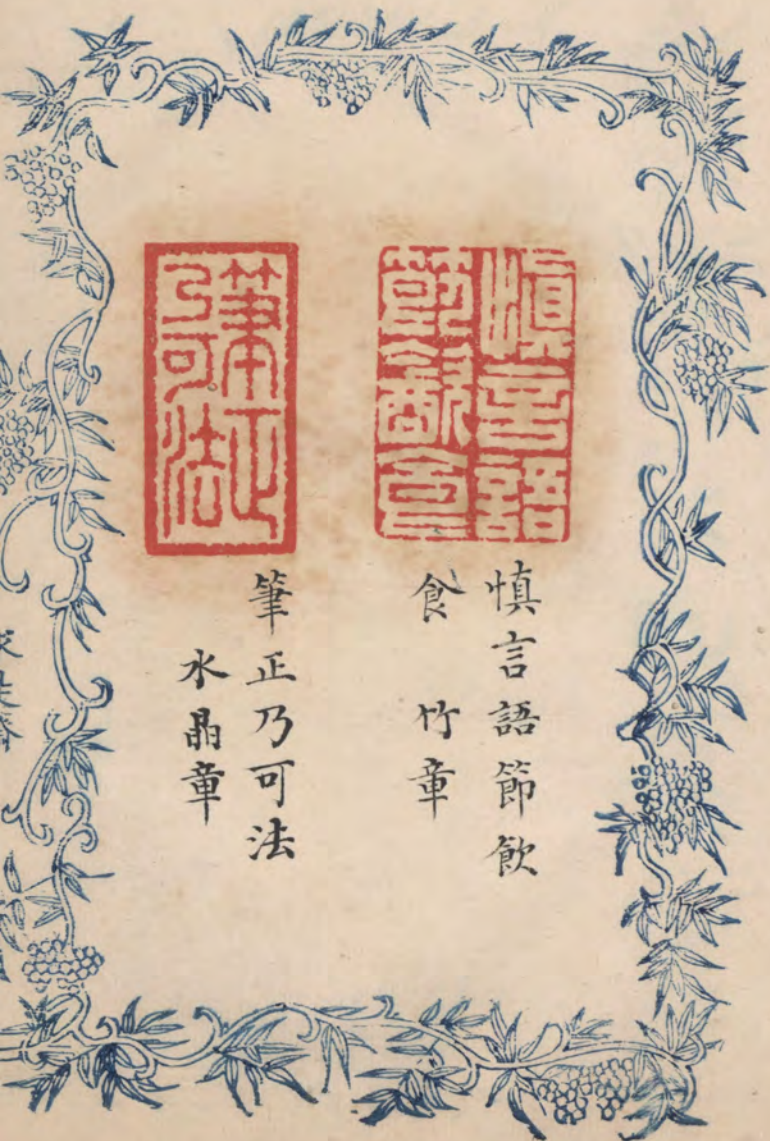 慎言語
節飲食
慎言語節飲
食 竹章
筆正
乃可法
筆正乃可法
水晶章